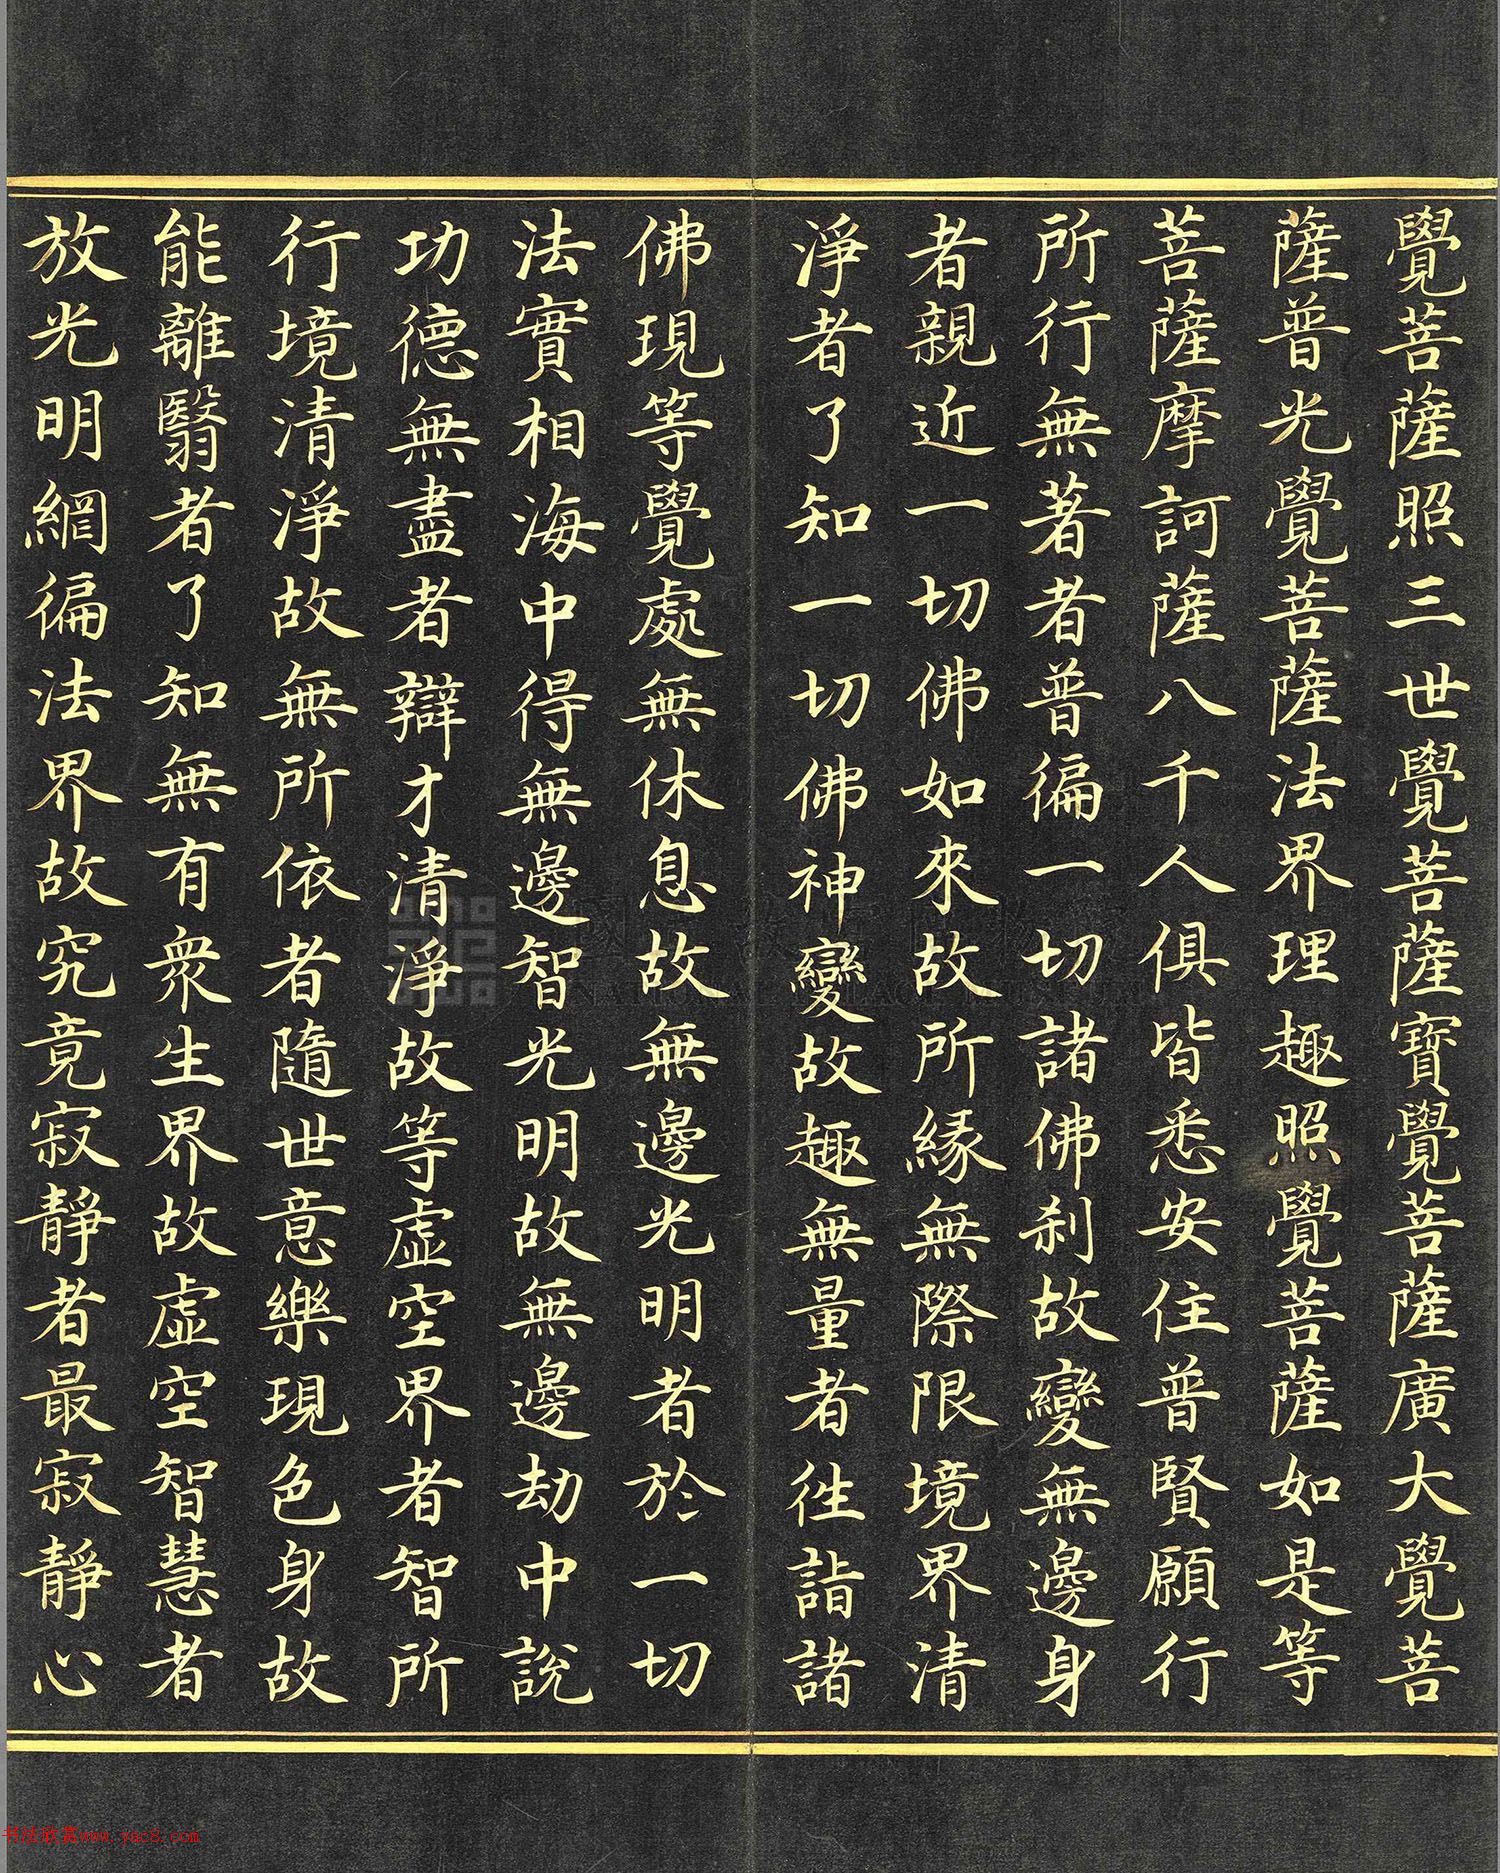 覺菩薩照三世覺菩薩寶覺菩薩廣大覺菩
薩普光覺菩薩法界理趣照覺菩薩如是等
菩薩摩訶薩八千人俱皆悉安住普賢願行
所行無著者普徧一切諸佛刹故變無邊身
者親近一切佛如來故所緣無際限境界清
淨者了知一切佛神變故趣無量者徃詣諸
佛現等覺處無休息故無邊光明者於一切
法實相海中得無邊智光明故無邊劫中說
功德無盡者辯才清淨故等虛空界者智所
行境清淨故無所依者隨世意樂現色身故
能離翳者了知無有衆生界故虛空智慧者
放光明網徧法界故究竟寂靜者最寂靜心
书法欣赏www.yac8.com
NATIONAL PALACE MUSEUM